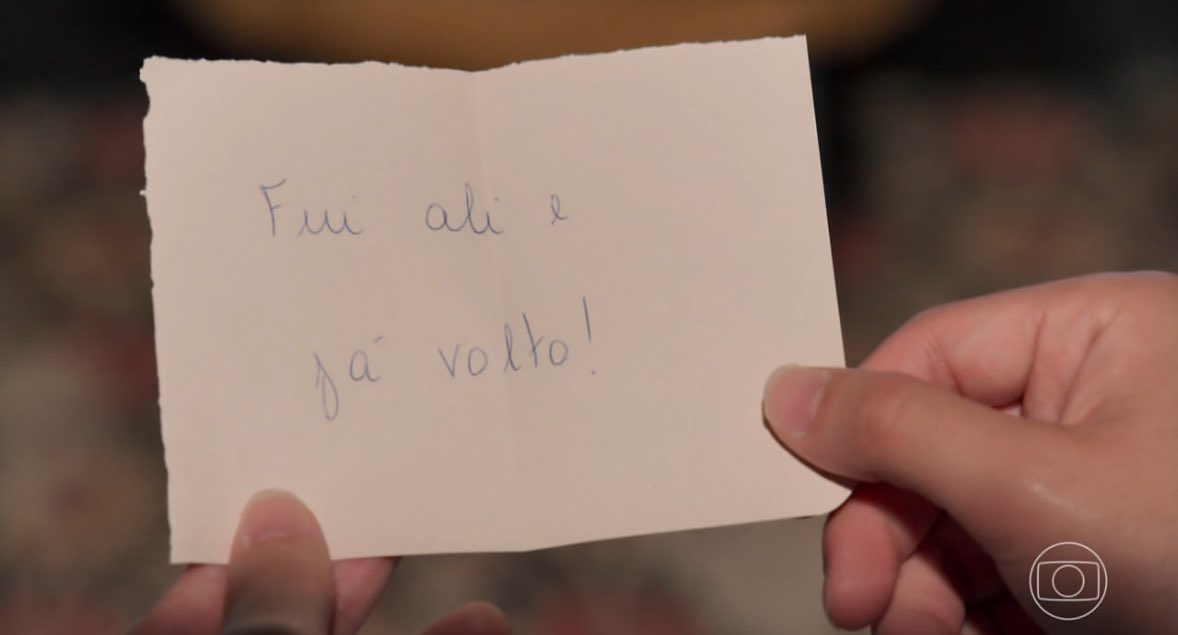 Fui ali e
já volto!